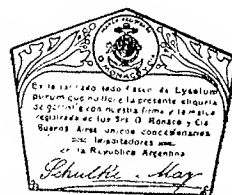 O. MONACO Y CIA
Es falsificado todo frasco de Lysolum
purum que no lleve la presente etiqueta
de garantía con nuestra firma y la marca
registrada de los Srs O. Monaco y Cia
Buenos Aires unicos concesionarios
Importadores
en la Republica Argentina
Schülke & Mayr